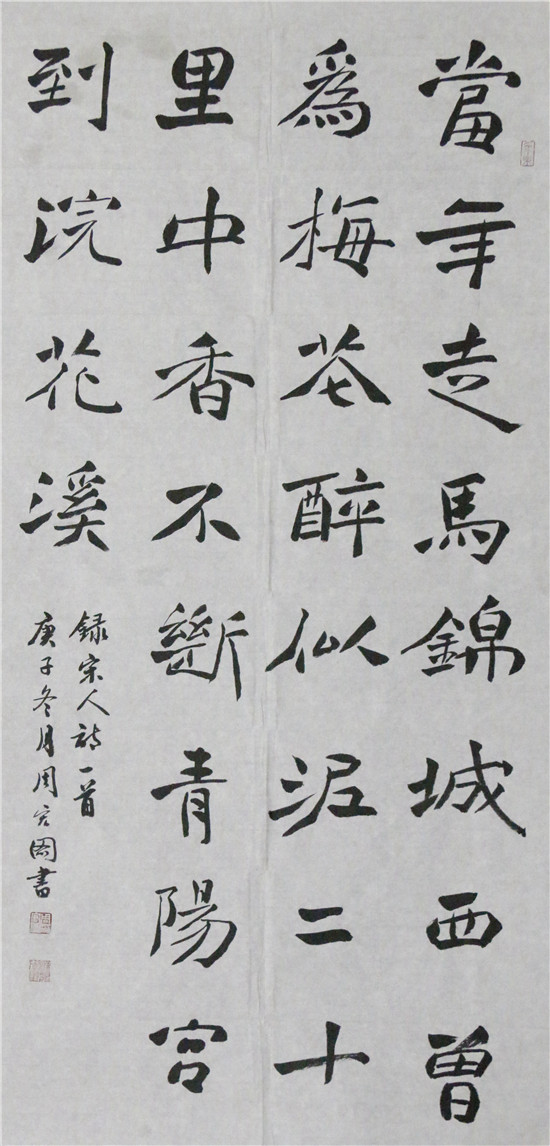 當年走馬錦城西曾
爲梅花醉似泥二十
里中香不斷青陽宫
到浣花溪
録宋人詩一首
庚子冬月周書